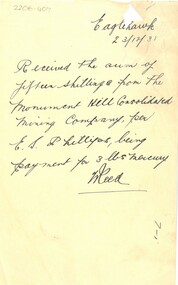 2204-407
Eaglehawk
23/12/31
Received the sum of
fifteen shillings from the
Monument Hill Consolidated
Mining Company, per
E. S. Phillips, being
payment for 3 lbs mercury
Reed